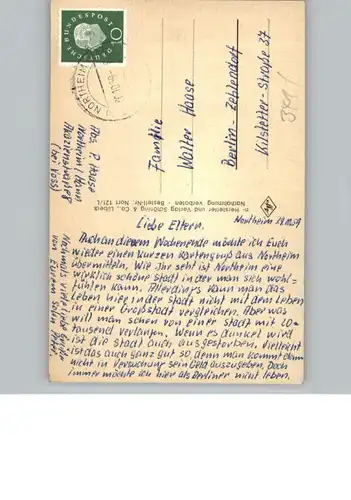 DEUTSCHE BUNDESPOST
10
NORTHEIM
Familie
Walter Haase
Berlin - Zehlendorf
Kilstetter-Straße 37
Abs. P. Haase
Northeim / Hann
(bei Voss)
Hersteller und Verlag Schöning & Co., Lübeck
Nachdruck verboten - Bestell-Nr. Nort 121/L
Northeim
Liebe Eltern.
Auch an diesem Wochenende möchte ich Euch
wieder einen kurzen Kartengruß aus Northeim
übermitteln. Wie ihr seht ist Northeim eine
wirklich schöne Stadt in der man sich wohl-
fühlen kann. Allerdings kann man das
Leben hier in der Stadt nicht mit dem Leben
in einer Großstadt vergleichen. Aber was
will man schon von einer Stadt mit 20-
tausend verlangen. Wenn es dunkel wird
ist die Stadt auch ausgestorben. Vielleicht
ist das auch ganz gut so, denn man kommt dann
nicht in Versuchung sein Geld auszugeben. Doch
immer möchte ich hier als Berliner nicht leben.
Nochmals viele liebe Grüße
von Eurem Sohn Peter.